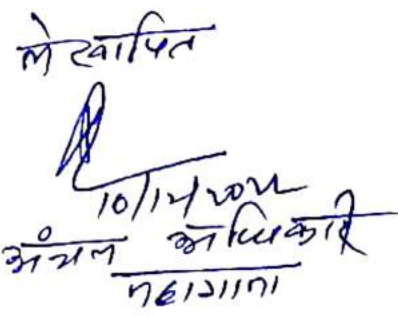 लेखापित
10/12/2022
अंचल अधिकारी
महागामा